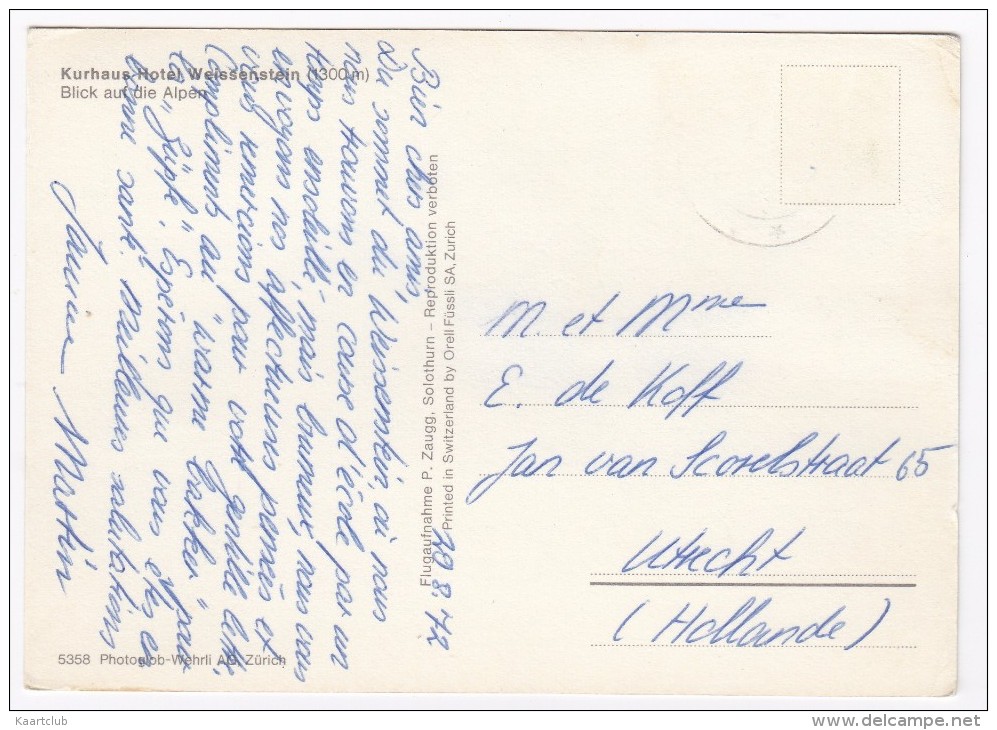 Kurhaus-Hotel Weissenstein (1300 m)
Blick auf die Alpen
Bien chers amis,
Du sommet du Weissenstein, où nous
nous trouvons en course d'école par un
temps ensoleillé mais brumeux, nous vous
envoyons nos affectueuses pensées et
vous remercions pour votre gentille lettre.
Compliments au "warme bakker" pour
la " ". Espérons que vous êtes en
bonne santé. Meilleures salutations
Janine Martin
29.8.72
Flugaufnahme P. Zaugg, Solothurn – Reproduktion verboten
Printed in Switzerland by Orell Füssli SA, Zürich
M. et Mme
E. de Koff
Jan van Scorelstraat 65
Utrecht
(Hollande)
5358 Photoglob-Wehrli AG, Zürich
Kaartclub
delcampe.net